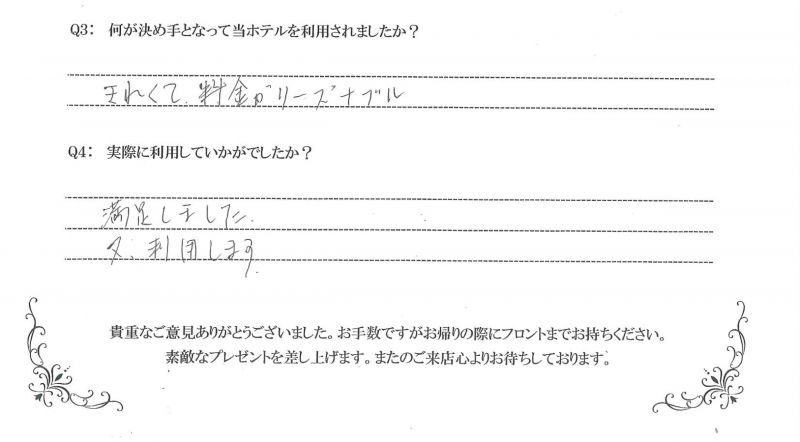 Q3: 何が決め手となって当ホテルを利用されましたか?
きれくて、料金がリーズナブル
Q4: 実際に利用していかがでしたか?
満足しました。
又、利用します。
貴重なご意見ありがとうございました。お手数ですがお帰りの際にフロントまでお持ちください。
素敵なプレゼントを差し上げます。またのご来店心よりお待ちしております。